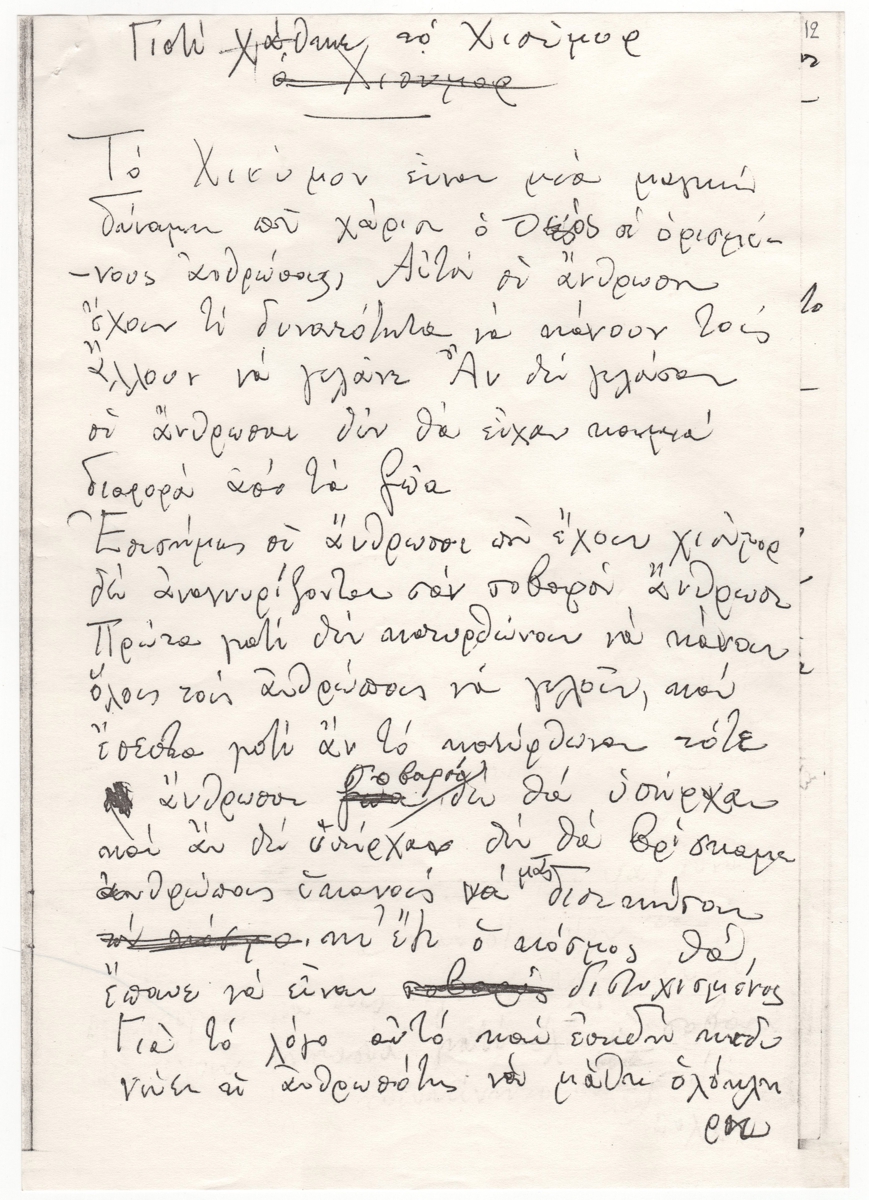 Γιατί χάθηκε τό Χιούμορ
ὁ Χιούμορ
12
Τό Χιούμορ εἶναι μιά μαγική
δύναμη ποὺ χάρισε ὁ Θεός σέ ὁρισμέ-
-νους ἀνθρώπους, Αὐτοί οἱ ἄνθρωποι
ἔχουν τή δυνατότητα νά κάνουν τούς
ἄλλους νά γελᾶνε Ἄν δέν γελούσαν
οἱ ἄνθρωποι δέν θά εἶχαν καμμιά
διαφορά ἀπό τά ζῶα
Ἐπισήμως οἱ ἄνθρωποι ποὺ ἔχουν χιοῦμορ
δέν ἀναγνωρίζονται σάν σοβαροί ἄνθρωποι
Πρῶτα γιατί δέν κατορθώνουν νά κάνουν
ὅλους τούς ἀνθρώπους νά γελοῦν, καί
ἔπειτα γιατί ἄν τό κατόρθωναν τότε
ἄνθρωποι σοβαροί δέν θά ὑπῆρχαν
καί ἄν δέν ὑπῆρχαν δέν θά βρίσκαμε
ἀνθρώπους ἱκανούς νά μᾶς διοικήσουν
τόν κόσμο. κι' ἔτσι ὁ κόσμος θά
ἔπαυε νά εἶναι σοβαρός δυστυχισμένος
Γιά τό λόγο αὐτό καί ἐπειδή κινδυ
νεύει ἡ ἀνθρωπότης νά μάθει ὁλόκλη
ρη
το